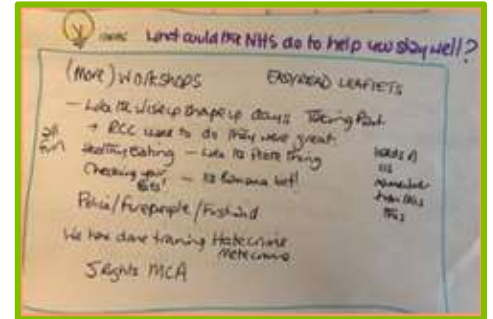 ideas What could the NHS do to help you stay well?
(More) Workshops EASYREAD LEAFLETS
- Like the Wise up Shape up days Taking Part
+ RCC used to do They were great
all fun
Healthy Eating - Like the Plate thing
Checking your Bits! - the Banana bit!
loads of us remember from this
Police/Firepeople/First aid
We have done training Hate crime
Mate crime
5 Rights MCA